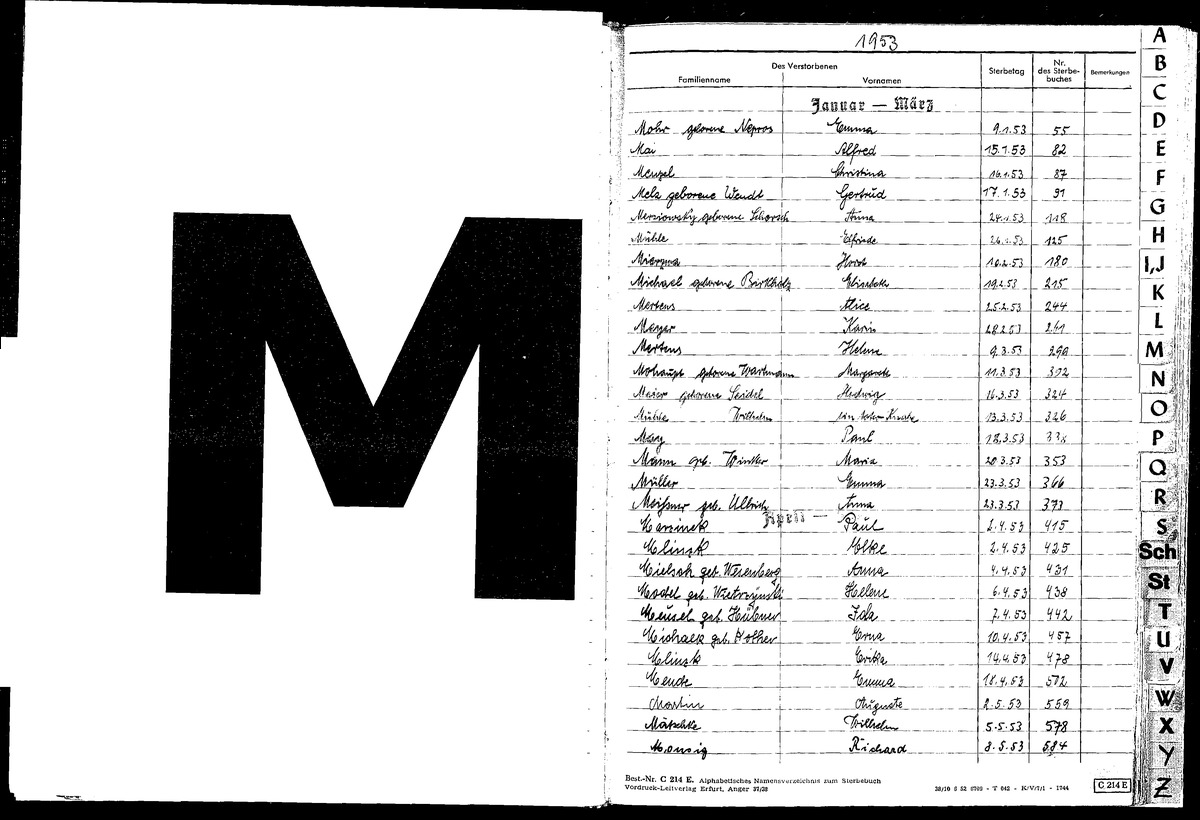 M
1953
Des Verstorbenen
Familienname Vornamen Sterbetag Nr. des Sterbe-buches Bemerkungen
Januar — März
Mohr geborene Nepros Emma 9.1.53 55
Mai Alfred 15.1.53 82
Menzel Christina 16.1.53 87
Melz geborene Wendt Gertrud 17.1.53 91
Merziowsky geborene Schorsch Anna 24.1.53 118
Mühle Elfriede 26.1.53 125
Horst 10.2.53 180
Michael geborene Birkholz Elisabeth 19.2.53 215
Mertens Alice 25.2.53 244
Meyer Karin 28.2.53
Mertens Helene 9.3.53 299
Mohaupt geborene Wartmann Margarete 11.3.53 312
Maier geborene Seidel Hedwig 16.3.53 324
Mühle Wilhelm Knabe 13.3.53 326
May Paul 18.3.53
Mann geb. Winkler Maria 20.3.53 353
Müller Emma 23.3.53 366
Meißner geb. Ulbrich Anna 23.3.53 373
April —
Marsinek Paul 2.4.53 415
Mlinzk Elke 2.4.53 425
Mielsch geb. Wesenberg Anna 4.4.53 431
Model geb. Helene 6.4.53 438
Meusel geb. Hübner Ida 7.4.53 442
Michalk geb. Erna 10.4.53 457
Mlinzk Erika 14.4.53 478
Mende Emma 18.4.53 502
Martin Auguste 2.5.53 559
Mätschke Wilhelm 5.5.53 578
Monsig Richard 8.5.53 584
Best.-Nr. C 214 E. Alphabetisches Namensverzeichnis zum Sterbebuch
Vordruck-Leitverlag Erfurt, Anger 37/38
C 214 E
A
B
C
D
E
F
G
H
I,J
K
L
M
N
O
P
Q
R
S
Sch
St
T
U
V
W
X
Y
Z